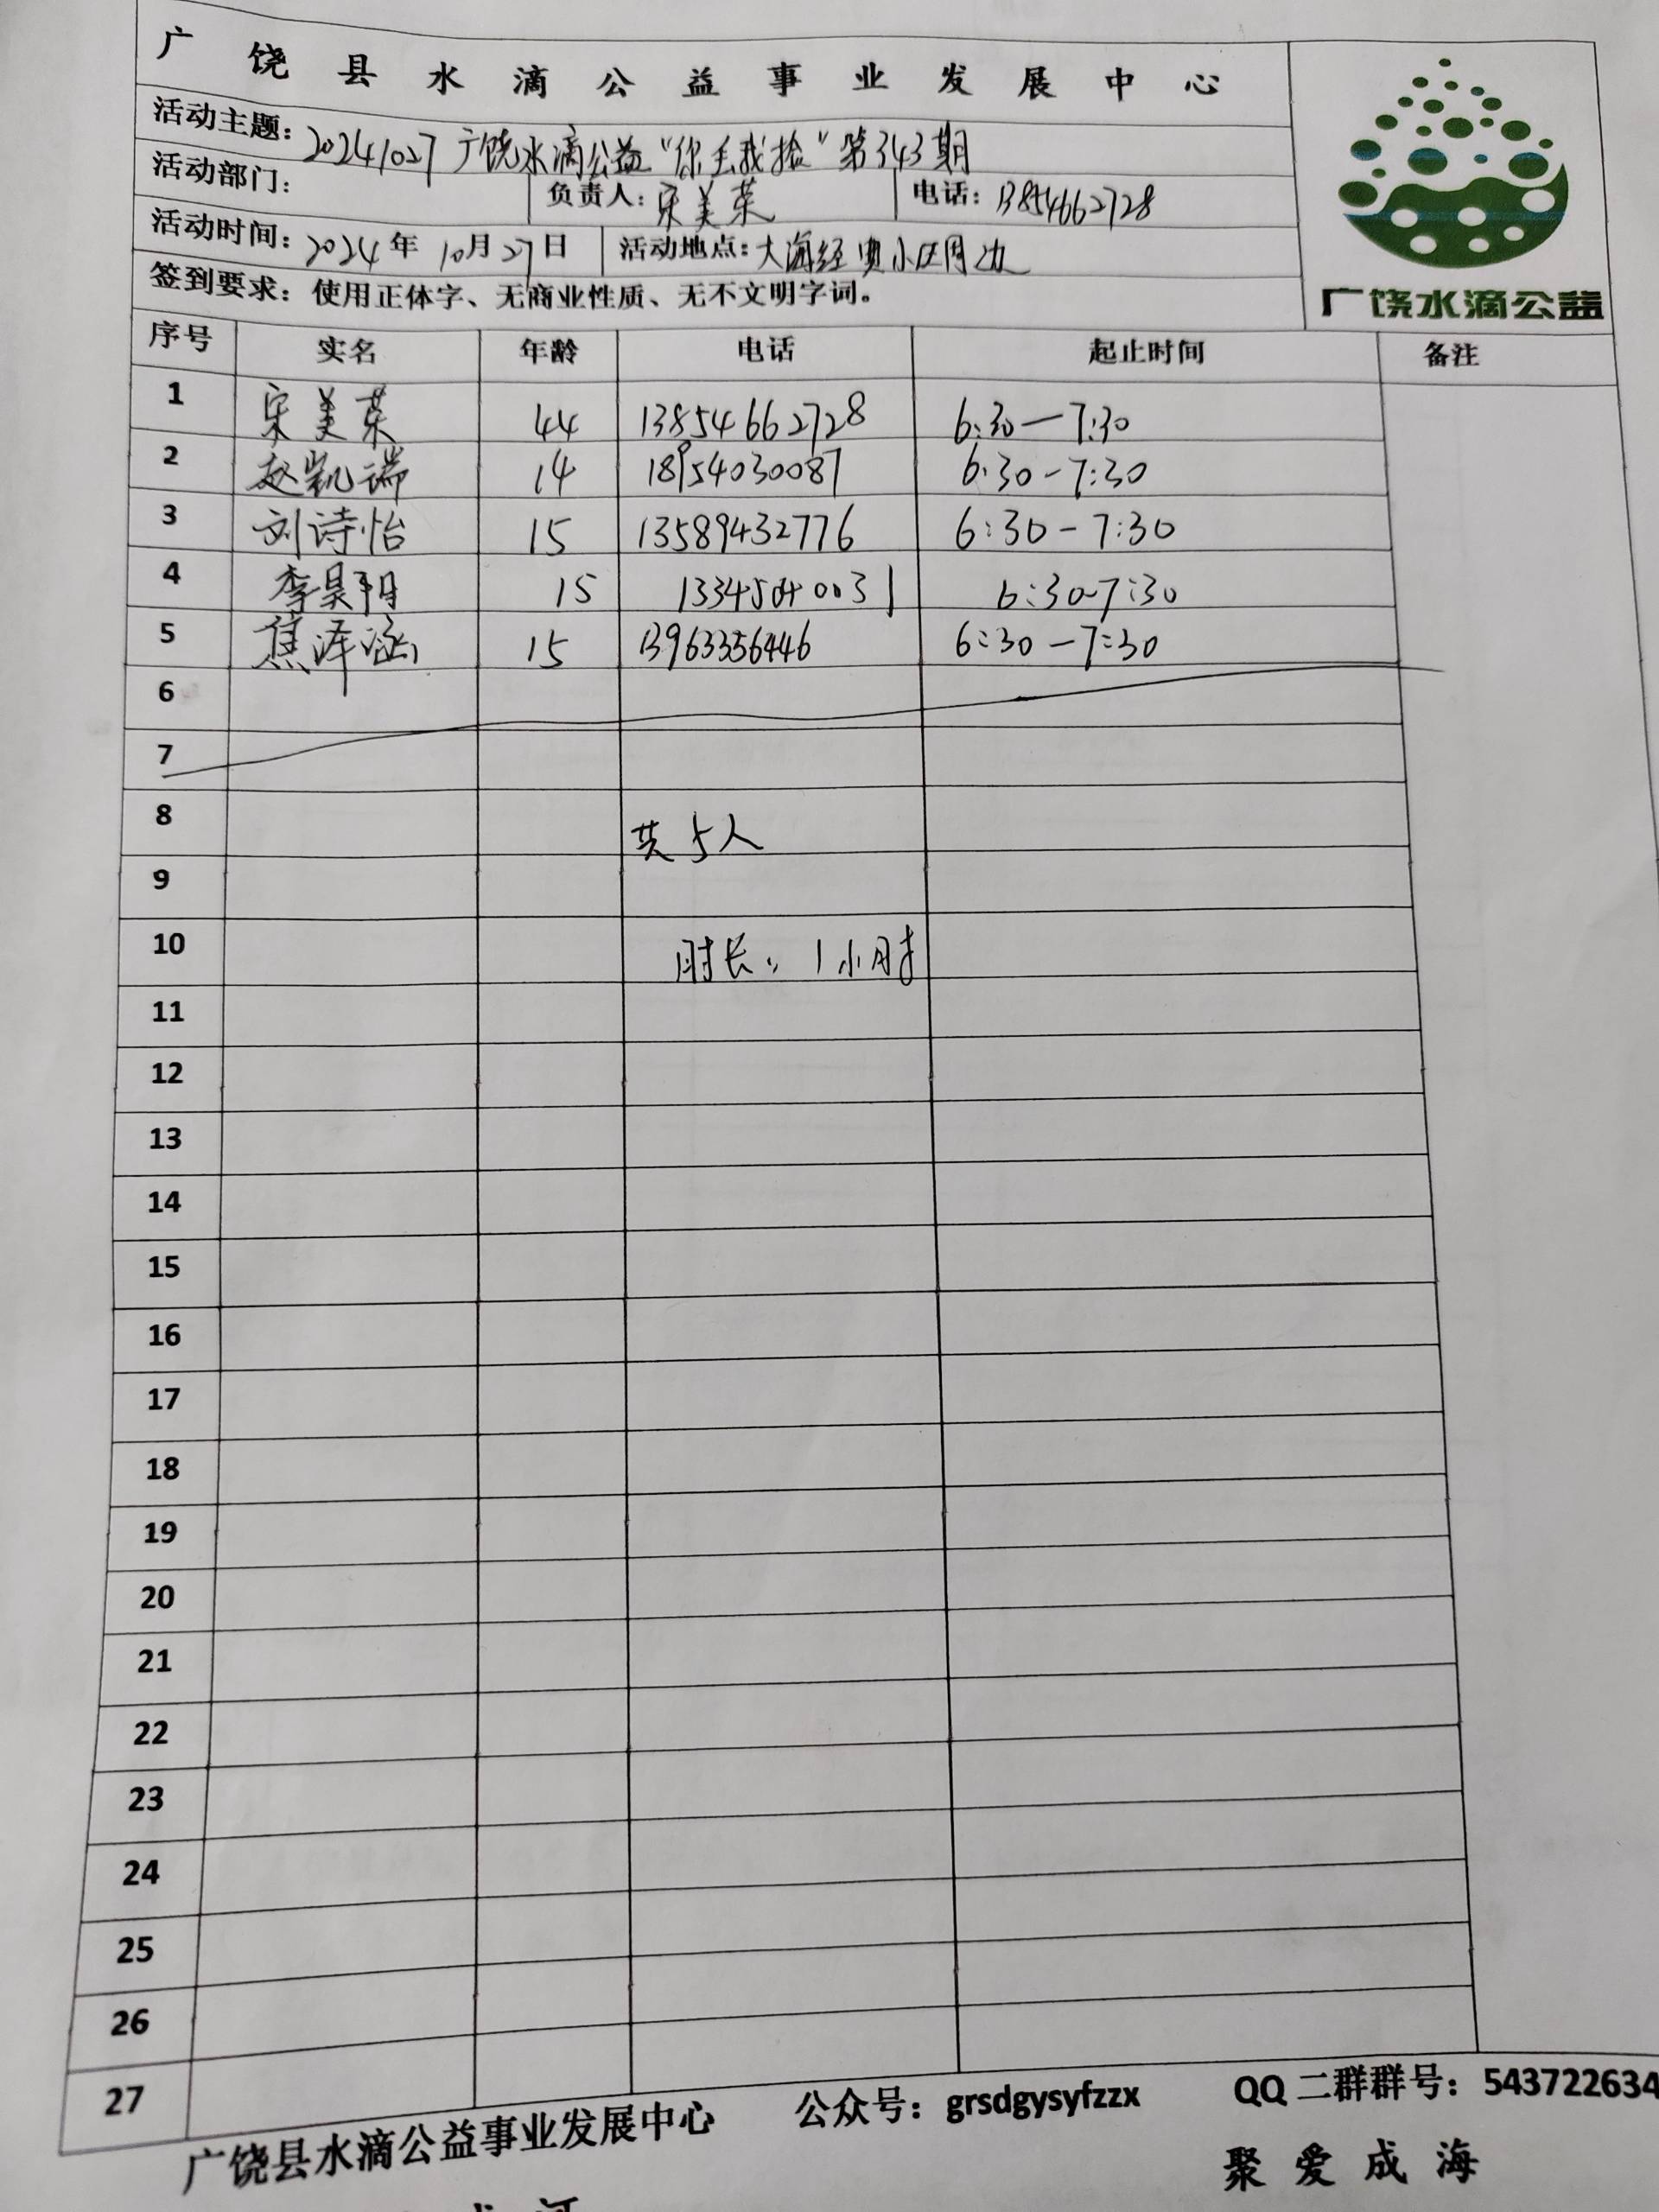 广饶县水滴公益事业发展中心
活动主题：20241027广饶水滴公益“你丢我捡”第343期
活动部门： 负责人：宋美荣 电话：13854662728
活动时间：2024年10月27日 活动地点：大海经典小区周边
签到要求：使用正体字、无商业性质、无不文明字词。
广饶水滴公益
序号 实名 年龄 电话 起止时间 备注
1 宋美荣 44 13854662728 6:30—7:30
2 赵凯瑞 14 18954030087 6:30-7:30
3 刘诗怡 15 13589432776 6:30-7:30
4 李昊阳 15 6:30-7:30
5 焦泽涵 15 13963356446 6:30-7:30
6
7
8 共5人
9
10 时长：1小时
11
12
13
14
15
16
17
18
19
20
21
22
23
24
25
26
27
广饶县水滴公益事业发展中心 公众号：grsdgysyfzzx QQ二群群号：543722634
聚爱成海